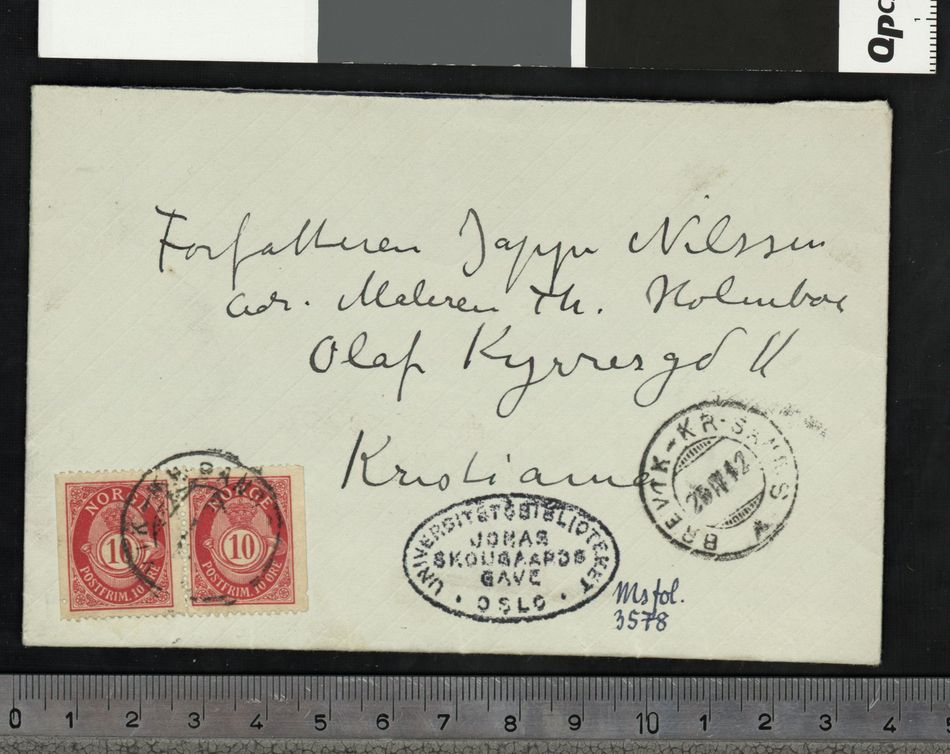 Qpc
Forfatteren Jappe Nilssen
adr. Maleren Th. Holmboe
Olaf Kyrresgd 11
Kristiania
BREVTK-KR.SANDS A
25 IV 12
NORGE NORGE
10 10
POSTFRIM. 10 ØRE POSTFRIM. 10 ØRE
UNIVERSITETSBIBLIOTEKET
JONAS
SKOUGAARDS
GAVE
OSLO
Ms fol.
3578
0 1 2 3 4 5 6 7 8 9 10 1 2 3 4 5